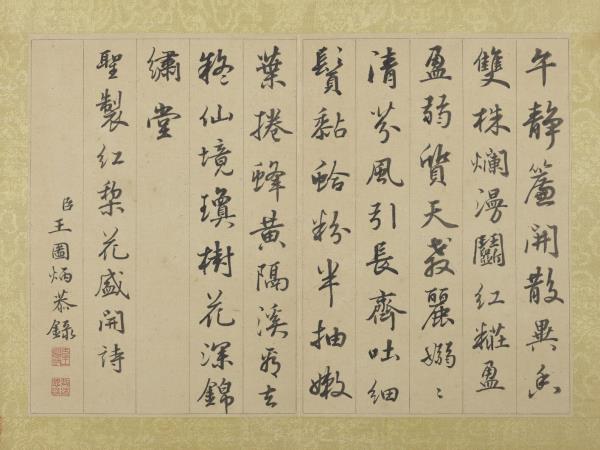 午靜簾開散異香
雙株爛漫鬭紅糚盈
盈弱質天教麗嫋〻
清芬風引長齊吐細
鬚黏蛤粉半抽嫩
葉捲蜂黃隔溪看去
疑仙境瓊樹花深錦
繡堂
聖製紅梨花盛開詩
臣王圖炳恭錄